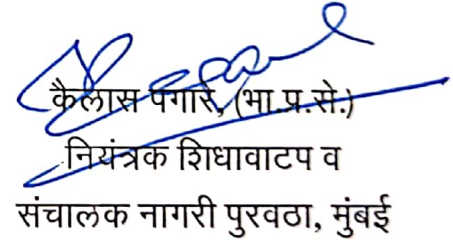 कैलास पगारे, (भा.प्र.से.)
नियंत्रक शिधावाटप व
संचालक नागरी पुरवठा, मुंबई